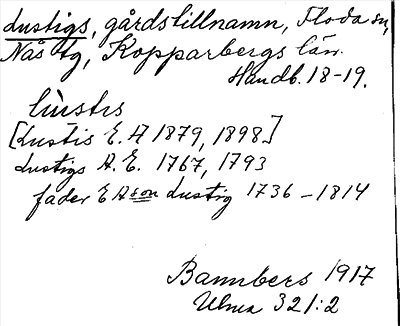 Lustigs, gårdstillnamn, Floda sn,
Nås tg, Kopparbergs län.
Handb. 18-19.
lùstıs
[Lustis E. H 1879, 1898]
Lustigs A. E. 1767, 1793
fader E Ason Lustig 1736-1814
Bannbers 1917
Ulma 321:2